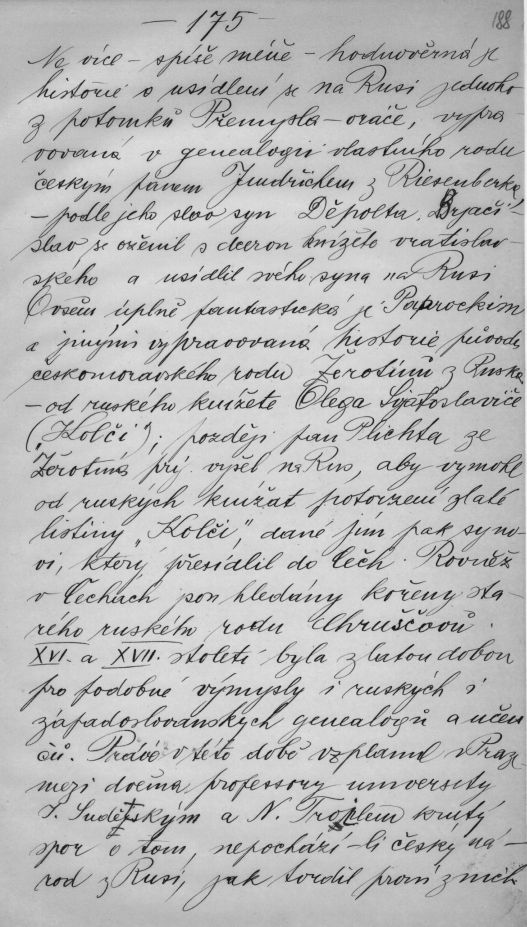 - 175 -
188
Ne více - spíše méně - hodnověrná je
historie o usídlení se na Rusi jednoho
z potomků Přemysla-oráče, vypra-
vovaná v genealogii vlastního rodu
českým panem Jindřichem z Riesenberka
- podle jeho slov syn Děpolta, Brjači-
slav se oženil s dcerou knížete vratislav-
ského a usídlil svého syna na Rusi
Ovšem úplně fantastická je Paprockim
a jinými vypravovaná historie původu
českomoravského rodu Žerotínů z Ruska
- od ruského knížete Olega Svjatoslaviče
("Kolči"); později pan Plichta ze
Žerotína prý vyšel na Rus, aby vymohl
od ruských knížat potvrzení zlaté
listiny "Kolči", dané jim pak syno-
vi, který přesídlil do Čech. Rovněž
v Čechách jsou hledány kořeny sta-
rého ruského rodu Chruščovů.
XVI. a XVII. století byla zlatou dobou
pro podobné výmysly i ruských i
západoslovanských genealogů a učen
ců. Právě v této době vzplanul v Praze
mezi dvěma professory university
J. Sudětským a N. Troilem krutý
spor o tom, nepochází-li český ná-
rod z Rusi, jak tvrdil první z nich